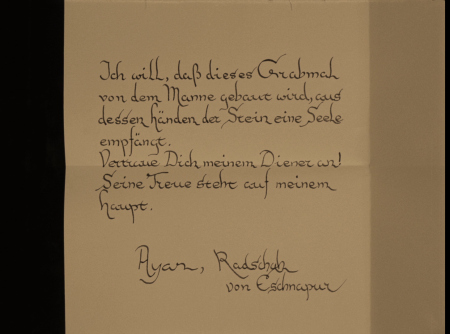 Ich will, daß dieses Grabmal
von dem Manne gebaut wird, aus
dessen Händen der Stein eine Seele
empfängt.
Vertraue Dich meinem Diener an!
Seine Treue steht auf meinem
Haupt.
Ayan, Radscha
von Eschnapur